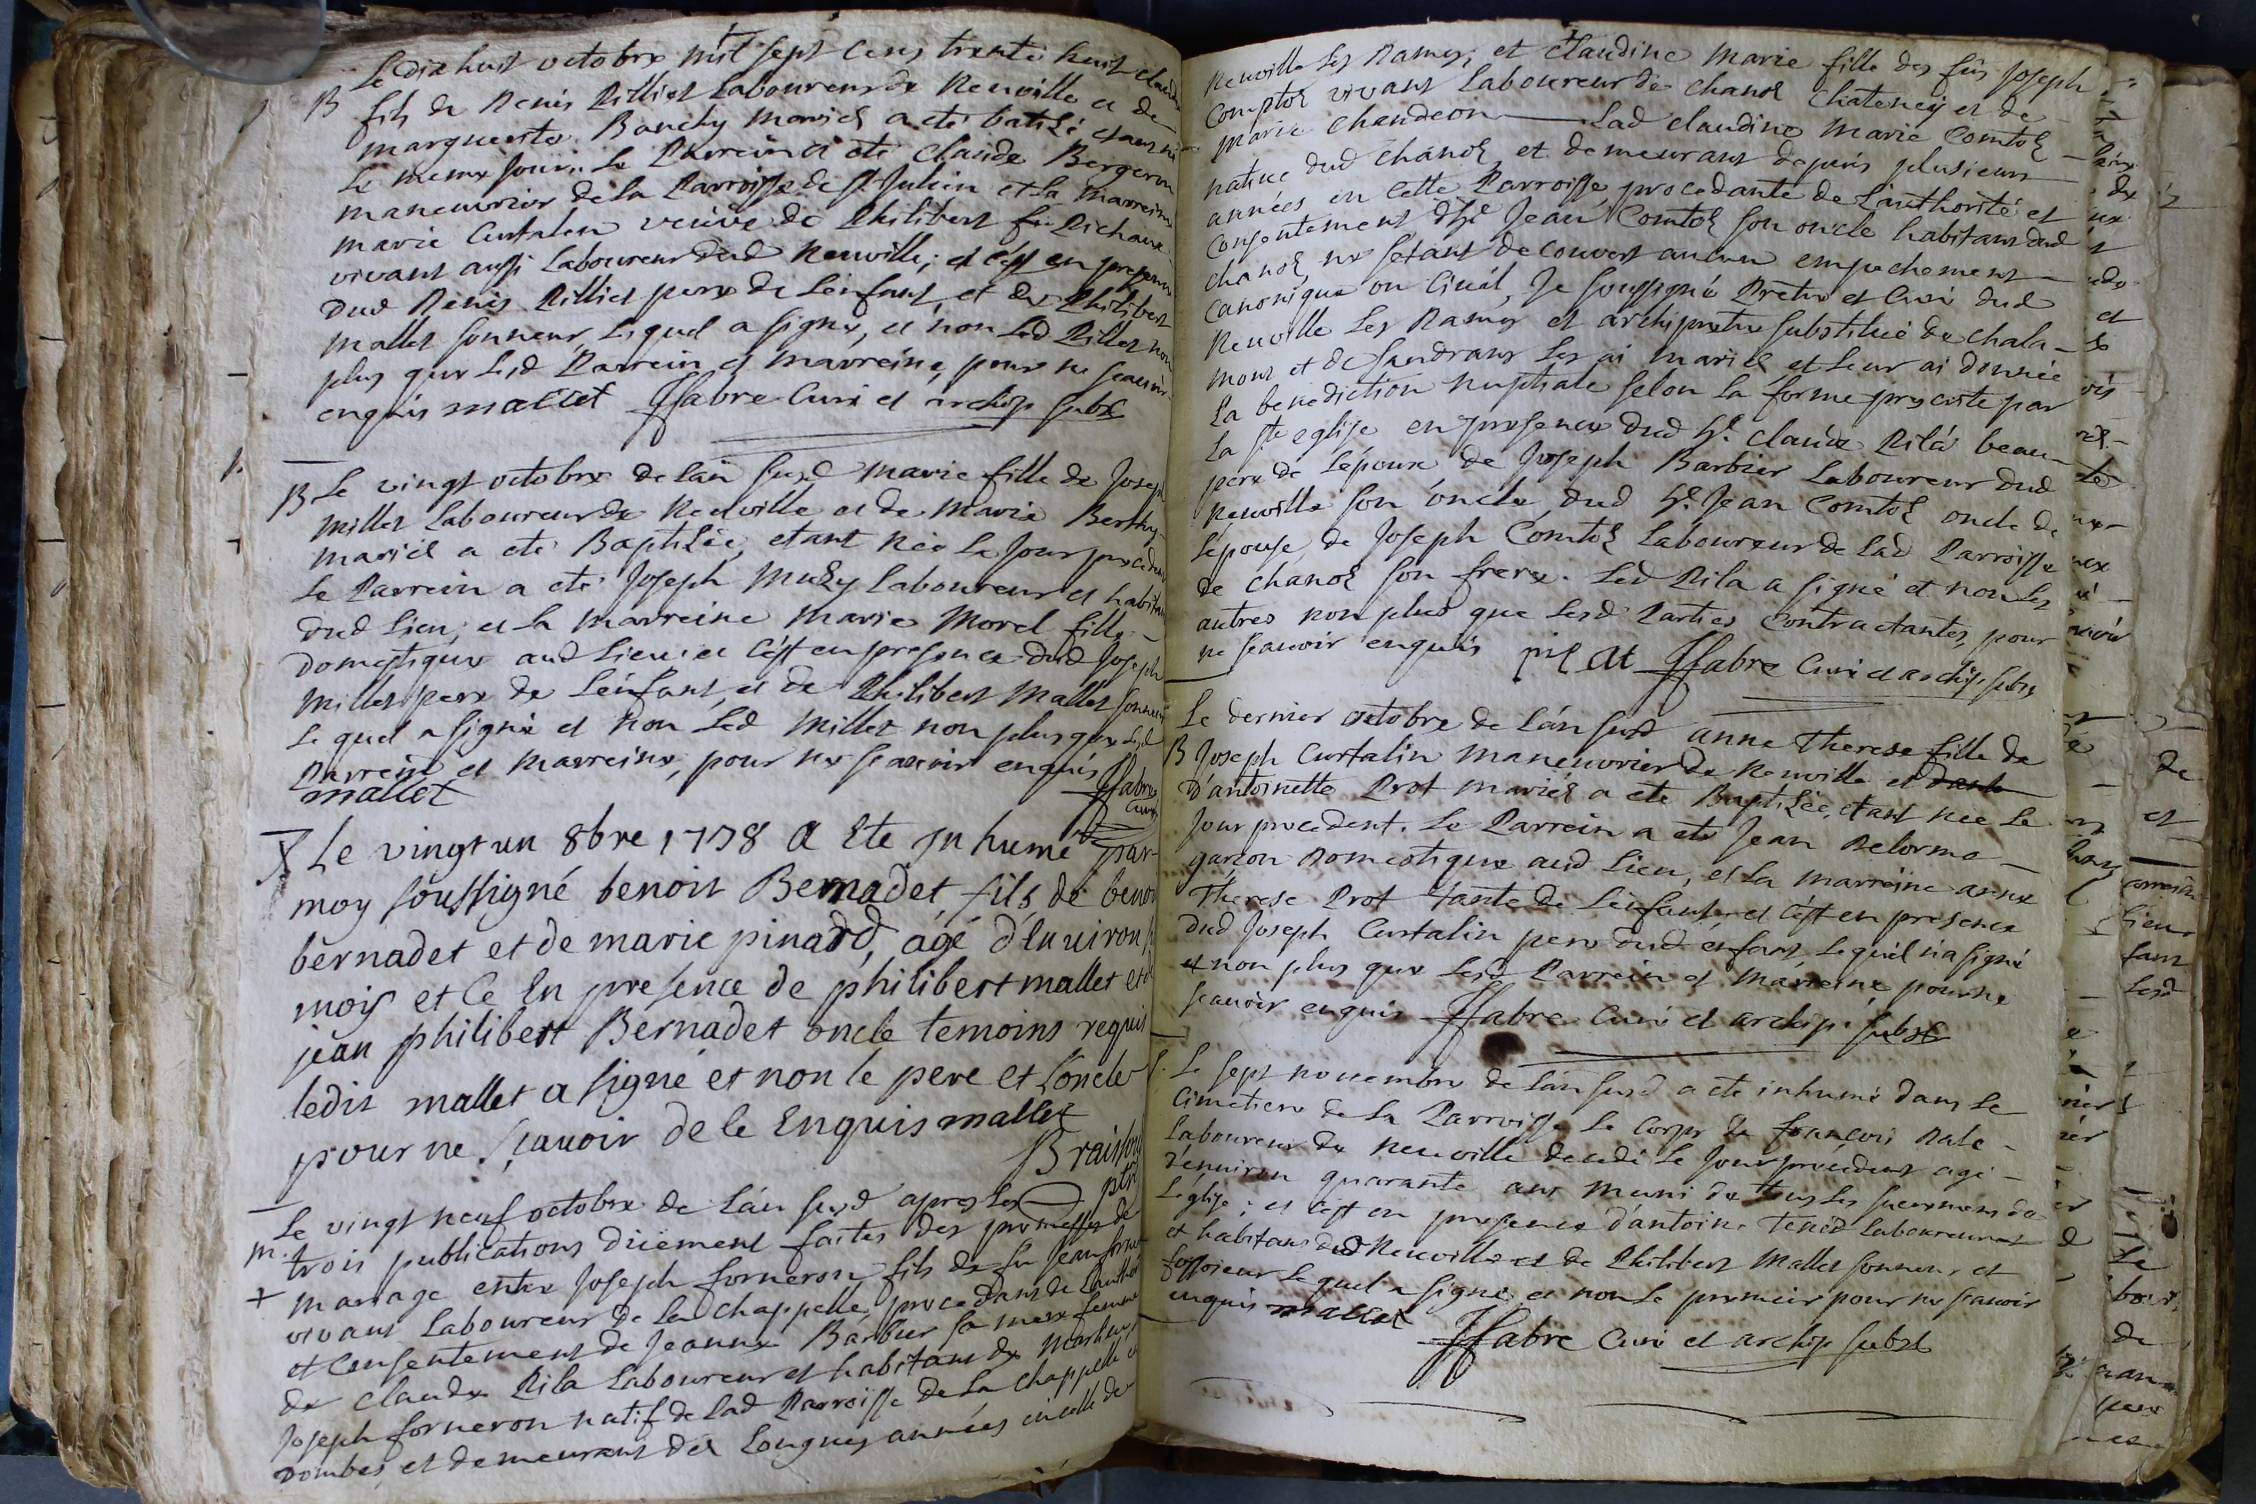 Le dix huit octobre mil sept cens trente huit claude
B fils de Denis Rillier Laboureur de Neuville et de
marguerite Bouchy mariés a eté batisé etant né
Le meme jour. Le Parrein a eté claude Bergeron
maneuvrier de la Parroisse de st Julien et la marreine
marie Curtalin veuve de Philibert fu Pichaux
vivant aussi Laboureur dud Neuville; et c'est en presence
dud Denis Rillier pere de L'enfant et de Philibert
mallet sonneur, Lequel a signé, et non Led Rillet non
plus que Lesd Parrein et marreine, pour ne sçavoir
enquis mallet ffabre Curé et archip subst
B Le vingt octobre de L'an susd marie fille de Joseph
millet Laboureur de Neuville et de marie Berthy
mariés a eté Baptisée, etant née Le Jour precedent
Le Parrein a eté Joseph muzy Laboureur et habitant
dud Lieu; et la marreine marie morel fille
Domestique aud Lieu; et c'est en presence dud Joseph
millet pere de L'enfant, et de Philibert mallet sonneur
Lequel a signé et non Led millet non plus que Lesd
Parrein et marreine, pour ne sçavoir enquis ffabre
mallet curé
Le vingt un 8bre 1738 a Ete Jnhumé par
moy soussigné benoit Bernadet, fils de benoit
bernadet et de marie pinard, agé d'Environ
mois et Ce En presence de philibert mallet et de
jean philibert Bernadet oncle temoins requis
ledit mallet a signé et non le pere et L'oncle
pour ne sçavoir de ce Enquis mallet
ptre
Le vingt neuf octobre de L'an susd apres Les
m. trois publications düement faites des promesses de
+ mariage entre Joseph forneron fils de fu Jean forneron
vivant Laboureur de La chappelle, procedant de L'authorité
et Consentement de Jeanne Barbier sa mere femme
de claude Rila Laboureur et habitant de
Joseph forneron natif de Lad Parroisse de La chappelle en
Dombes, et demeurant dès Longues années en celle de
Neuville Les Dames; et claudine marie fille des fûs Joseph
Comptoz vivant Laboureur de chanoz chatenay et de
marie chandeon Lad claudine marie Comtoz
native dud chanoz et demeurant depuis plusieurs
années en Cette Parroisse procedante de L'authorité et
Consentement d'hle Jean Comtoz son oncle habitant dud
chanoz, ne s'etant decouvert aucun empechement
Canonique ou Civil, Je soussigné Prêtre et Curé dud
Neuville Les Dames et archipretre substitué de chala-
mont et de sandrans Les ai mariés et leur ai donnée
La benediction nuptiale selon la forme prescrite par
La ste eglise en presence dud hle claude Rila beau-
pere de L'époux de Joseph Barbier Laboureur dud
Neuville son oncle, dud hle Jean Comtoz oncle de
L'épouse, de Joseph Comtoz Laboureur de Lad Parroisse
de chanoz son frere. Led Rila a signé et non Les
autres non plus que Lesd Parties Contractantes, pour
ne sçavoir enquis ffabre Curé et archip. subst
Le dernier octobre de L'an susd anne Therese fille de
B Joseph Curtalin maneuvrier de Neuville et
d'antoinette Prot mariés a eté Baptisée, etant née Le
Jour precedent. Le Parrein a eté Jean Delorme
garçon Domestique aud Lieu, et la marreine anne
Therese Prot tante de L'enfant et c'est en presence
dud Joseph Curtalin pere dud enfant Lequel n'a signé
et non plus que Lesd Parrein et marreine, pour ne
sçavoir enquis ffabre Curé et archip. subst
Le sept novembre de L'an susd a eté inhumé dans Le
Cimetiere de La Parroisse Le Corps de françois
Laboureur de Neuville decedé Le Jour precedent agé
d'environ quarante ans muni de tous Les sacremens de
L'église; et c'est en presence d'antoine Laboureur
et habitant dud Neuville et de Philibert mallet sonneur et
fossoieur Lequel a signé et non Le premier pour ne sçavoir
enquis mallet
ffabre Curé et archip subst